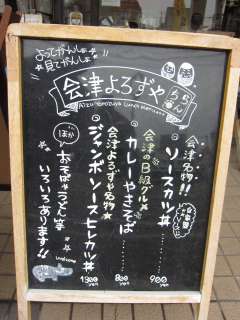 よってがんしょ
見てがんしょ
会津よろずや
らんちん
Aizu Yorozuya Lunch Merchant
会津名物!!
ソースカツ丼
900 yen
会津のB級グルメ
カレーやきそば
800 yen
会津よろずや名物★
ジャンボソースヒレカツ丼
1300 yen
ほか
おそば、うどん等
いろいろあります!!
welcome